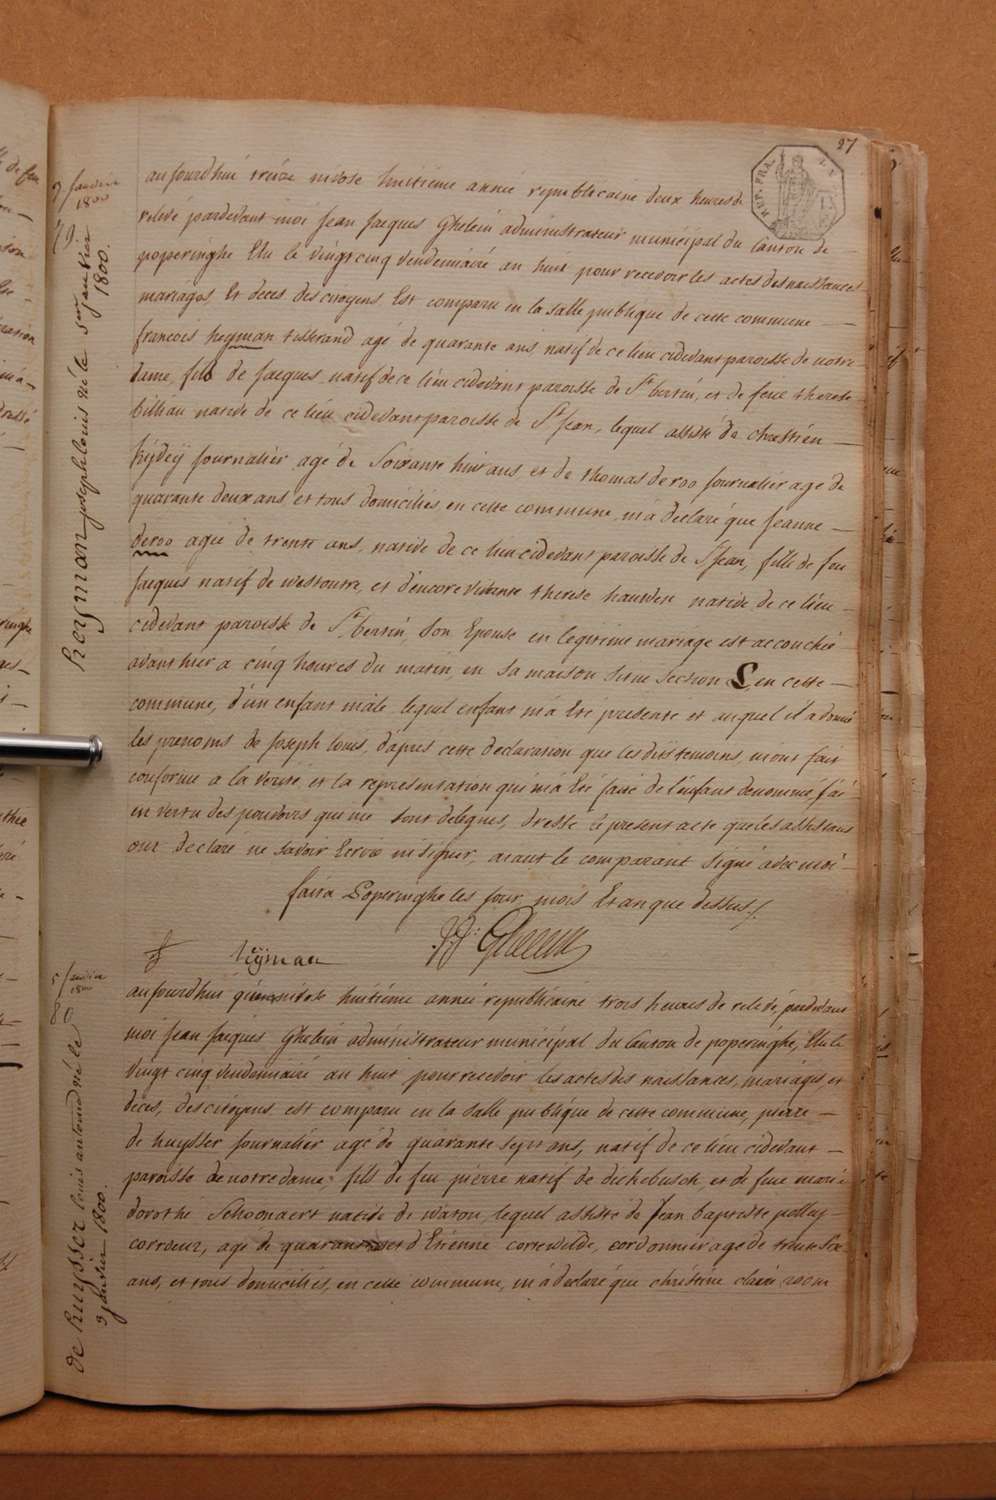 27
REP. FRA.
3 janvier
1800
79
heyman joseph louis né le 1er janvier
1800.
aujourdhui treize nivose huitieme année republicaine deux heures de
relevé pardevant moi Jean Jacques Ghelein administrateur municipal du Canton de
poperinghe Elu le vingt cinq vendemiaire an huit pour recevoir les actes des naissances
mariages Et deces des citoyens Est comparu en la salle publique de cette commune
francois heyman tisserand agé de quarante ans natif de ce lieu cidevant paroisse de notre
dame, fils de Jacques natif de ce lieu cidevant paroisse de St bertin, et de feue therese
billiau native de ce lieu cidevant paroisse de St Jean, lequel assisté de chrettien
journalier agé de Soixante huit ans et de thomas deroo journalier age de
quarante deux ans et tous domiciliés en cette commune m'a declaré que Jeanne
deroo agee de trente ans, native de ce lieu cidevant paroisse de St Jean, fille de feu
Jacques natif de westoutre, et d'encore vivante therese native de ce lieu
cidevant paroisse de St bertin, Son Epouse en legitime mariage est accouchée
avant hier a cinq heures du matin en Sa maison Situe Section C, en cette
commune, d'un enfant mâle lequel enfant m'a Eté presente et auquel il a donné
les prenoms de Joseph Louis, d'après cette declaration que les dits temoins, m'ont fait
conforme a la verité et la representation qui m'a Eté faite de l'enfant denommé, j'ai
en vertu des pouvoirs qui me sont delegués, dressé le present acte que les assistans
ont declaré ne Savoir Ecrire ni signer, aiant le comparant signé avec moi
fait a Poperinghe les jour, mois Et an que dessus
f heyman J.J. Ghelein
5 janvier
1800
80
de huysser louis antoine né le
3 janvier 1800.
aujourdhui quinze nivose huitieme année republicaine trois heures de relevé, pardevant
moi Jean Jacques Ghelein administrateur municipal du Canton de poperinghe, Elu le
vingt cinq vendemiaire an huit pour recevoir les actes des naissances, mariages, et
deces, des citoyens est comparu en la salle publique de cette commune, pierre
de huysser journalier age de quarante sept ans, natif de ce lieu cidevant
paroisse de notre dame, fils de feu pierre natif de dickebusch et de feue marie
dorothé Schoonaert native de watou, lequel assisté de Jean baptiste
agé de quarante et d'Etienne cortewilde, cordonnier age de trente Six
ans, et tous domiciliés, en cette commune, m'a declaré que christine claire